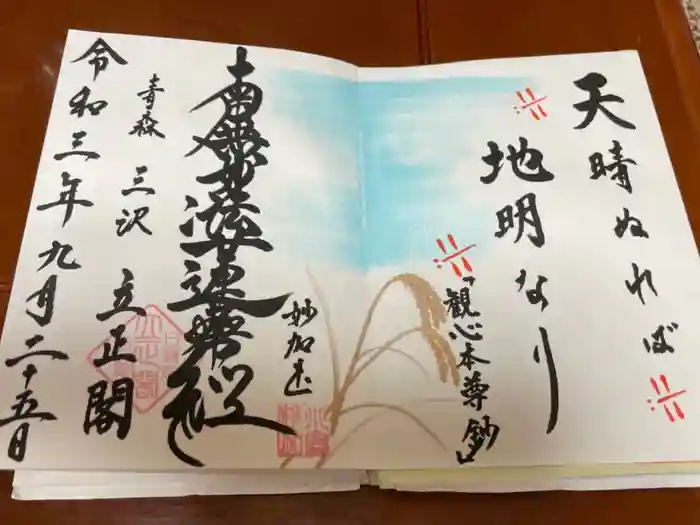 天晴ぬれば
地明なり
「観心本尊鈔」
妙加
南無妙法蓮華経
青森 三沢 立正閣
令和三年九月二十五日